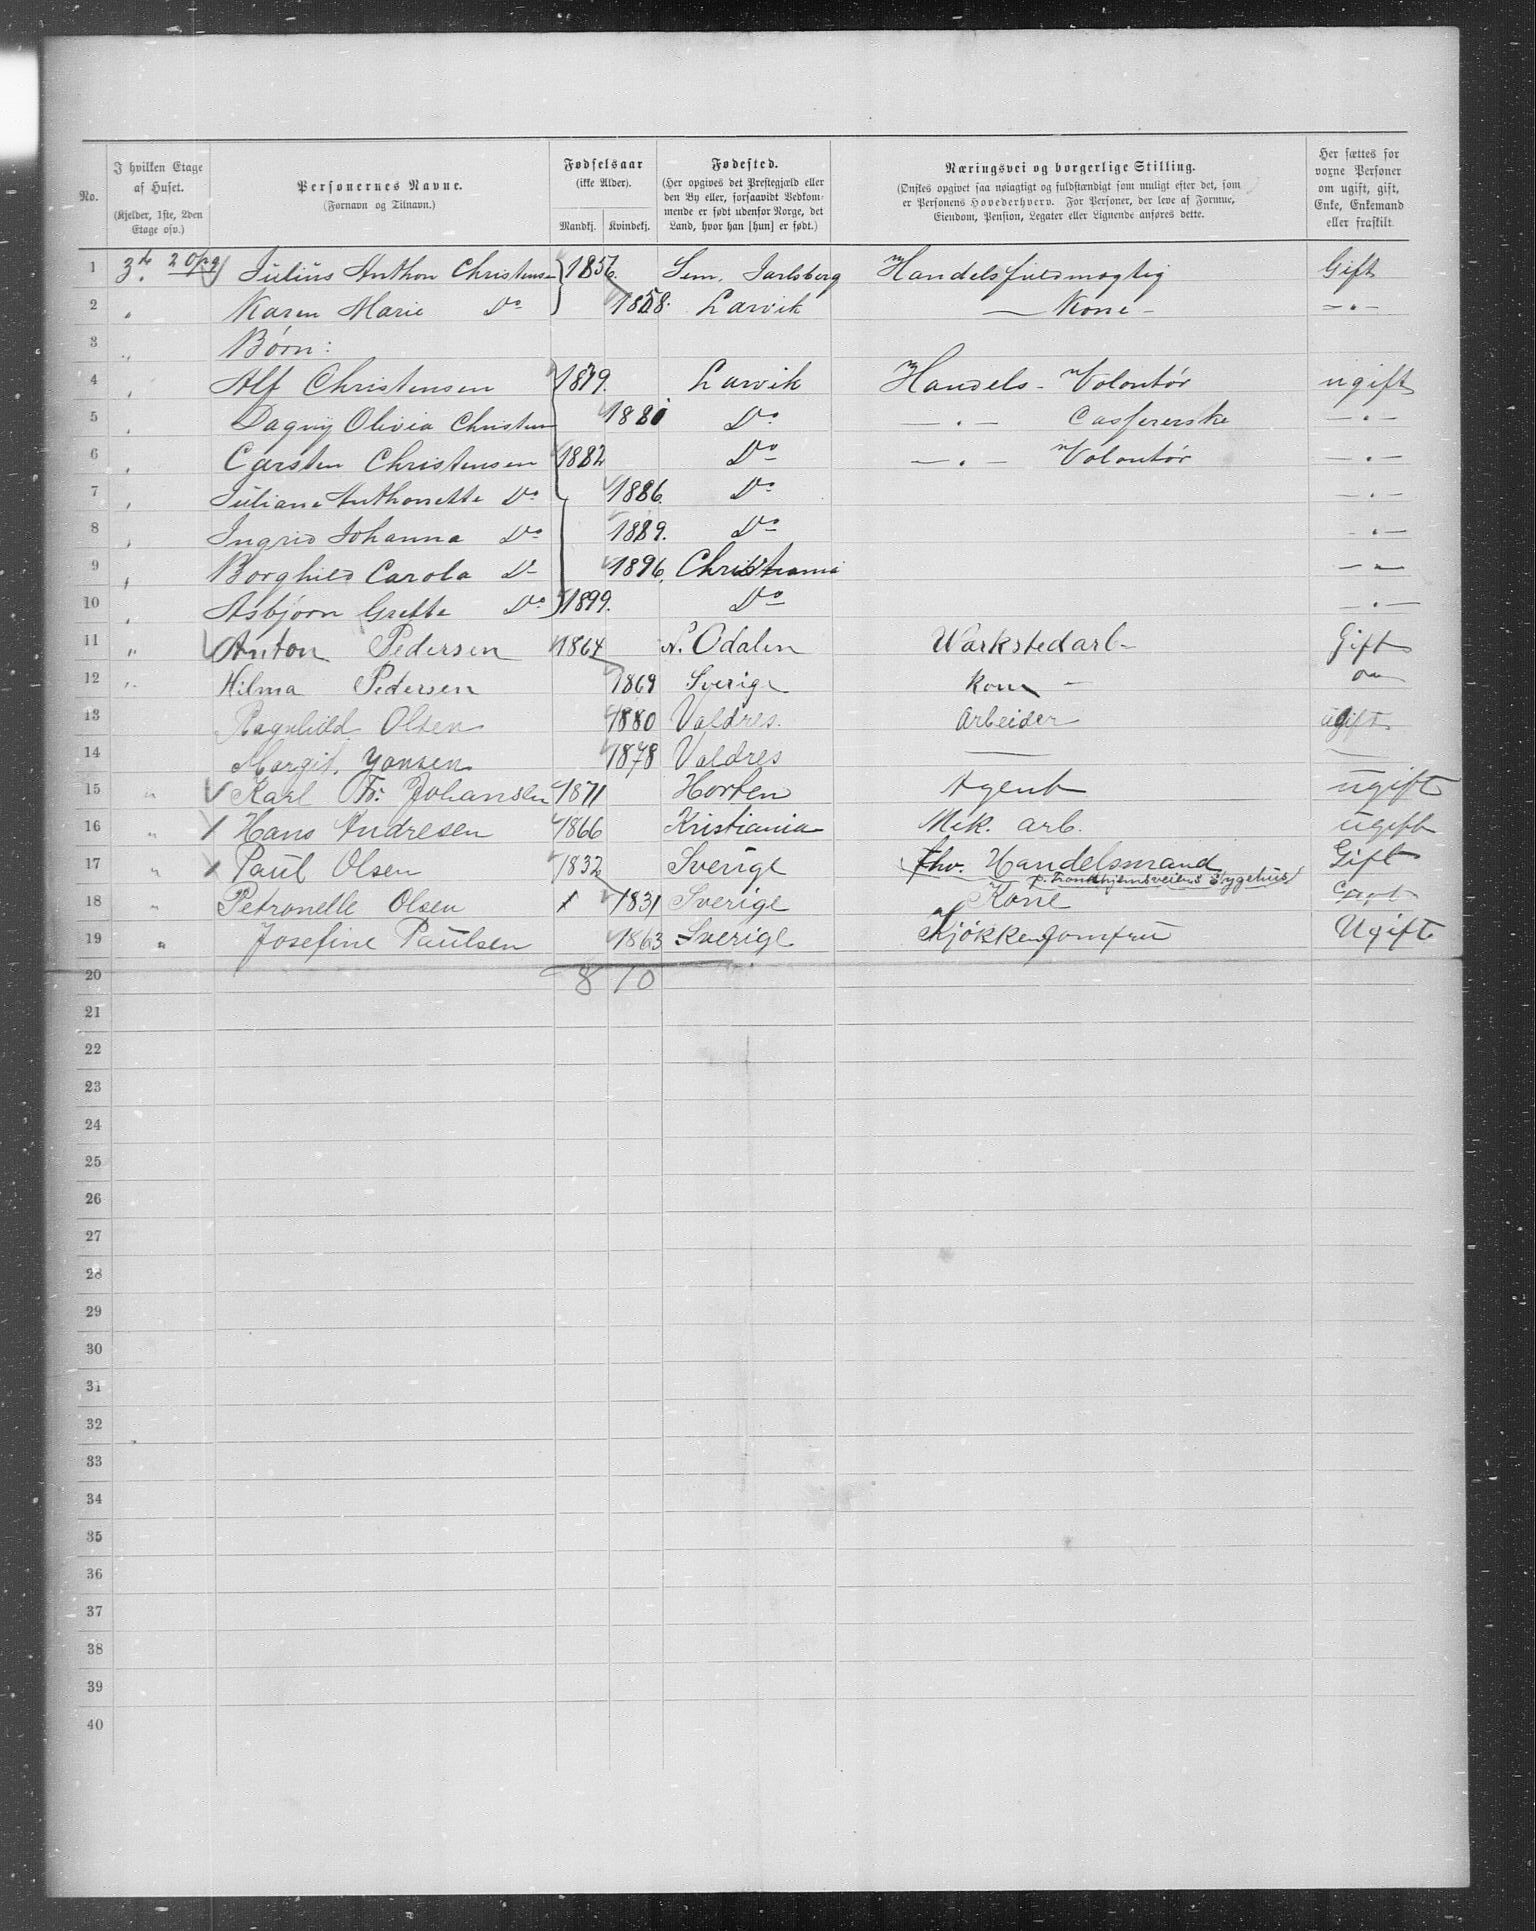 No.
I hvilken Etage af Huset.
(Kjelder, 1ste, 2den Etage osv.)
Personernes Navne.
(Fornavn og Tilnavn.)
Fødselsaar
(ikke Alder).
Mandkj. Kvindekj.
Fødested.
(Her opgives det Prestegjæld eller
den By eller, forsaavidt Vedkom-
mende er født udenfor Norge, det
Land, hvor han [hun] er født.)
Næringsvei og borgerlige Stilling.
(Ønskes opgivet saa nøiagtigt og fuldstændigt som muligt efter det, som
er Personens Hovederhverv. For Personer, der leve af Formue,
Eiendom, Pension, Legater eller Lignende anføres dette.
Her sættes for
vorne Personer
om ugift, gift,
Enke, Enkemand
eller fraskilt.
1 3die 2 Opg Julius Anthon Christensen 1856. Sem, Jarlsberg Handelsfuldmægtig Gift
2 " Karen Marie Do 1858. Larvik — Kone — — " —
3 " Børn:
4 " Alf Christensen 1879. Larvik Handels- Volontør ugift
5 " Dagny Olivia Christensen 1881 Do — " — Cassererske — " —
6 " Carsten Christensen 1882 Do — " — Volontør — " —
7 " Juliane Anthonette Do 1886 Do — " —
8 " Ingrid Johanna Do 1889. Do — " —
9 " Borghild Carola Do 1896. Christiania — " —
10 " Asbjørn Grefte Do 1899. Do — " —
11 " Anton Pedersen 1864 N. Odalen Værkstedarb- Gift
12 " Hilma Pedersen 1869 Sverige Kone —
13 Ragnhild Olsen 1880 Valdres. Arbeider ugift
14 Margit Jonsen 1878 Valdres — —
15 " Karl Fr. Johansen 1871 Horten Agent ugift
16 " Hans Andresen 1866 Kristiania Mek. arb. ugift
17 " Paul Olsen 1832 Sverige fhv. Handelsmand Gift
p. Trondhjemsveiens Sygehus
18 " Petronelle Olsen 1831 Sverige Kone Gift
19 " Josefine Paulsen 1863 Sverige Kjøkkenjomfru Ugift
20 8 10
21
22
23
24
25
26
27
28
29
30
31
32
33
34
35
36
37
38
39
40